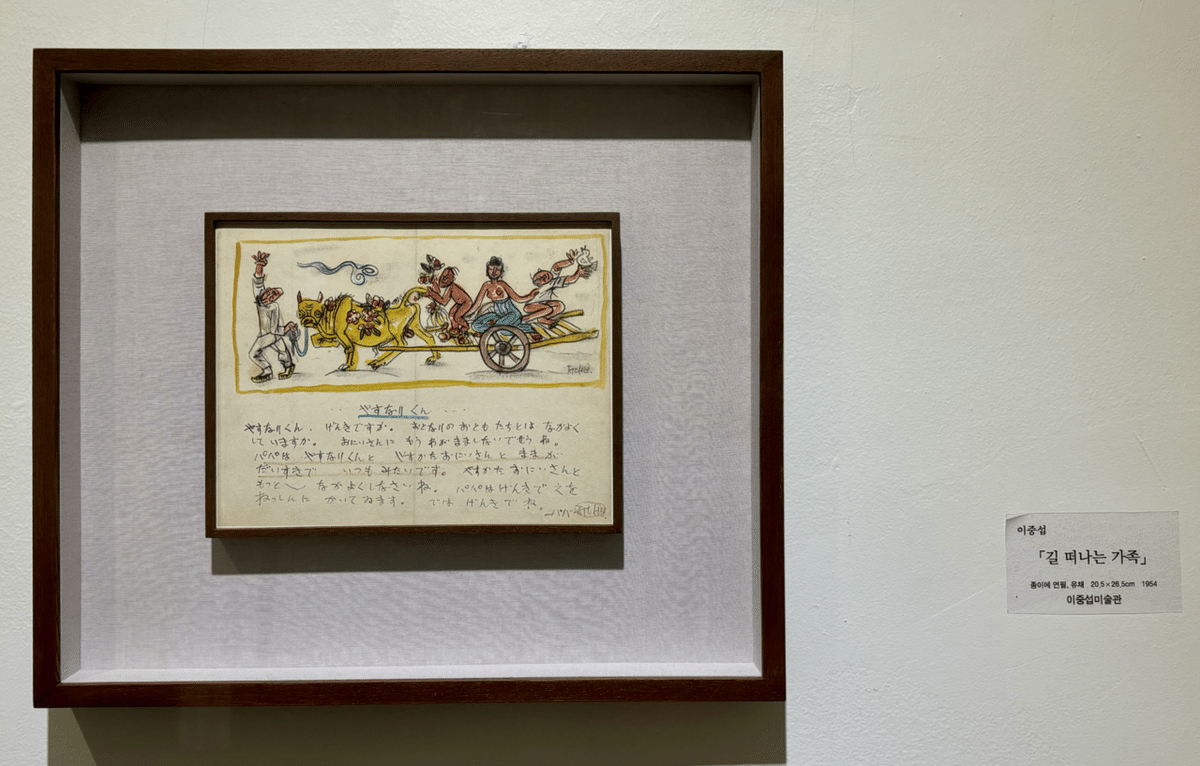 やすなりくん
やすなりくん、げんきですか。 おとなりの おとも たちとは なかよく
して いますか。 おにいさんに もう わがまましないでせうね。
パパは やすなりくんと やすかたおにいさんと ままが
だいすきで いつも みたいです。 やすかた おにいさんと
もっと なかよくしなさいね。 パパはげんきで 文を
ねっしんに かいてゐます。 では げんきでね。
ーパパ
이중섭
「길 떠나는 가족」
종이에 연필, 유채 20.5×26.5cm 1954
이중섭미술관